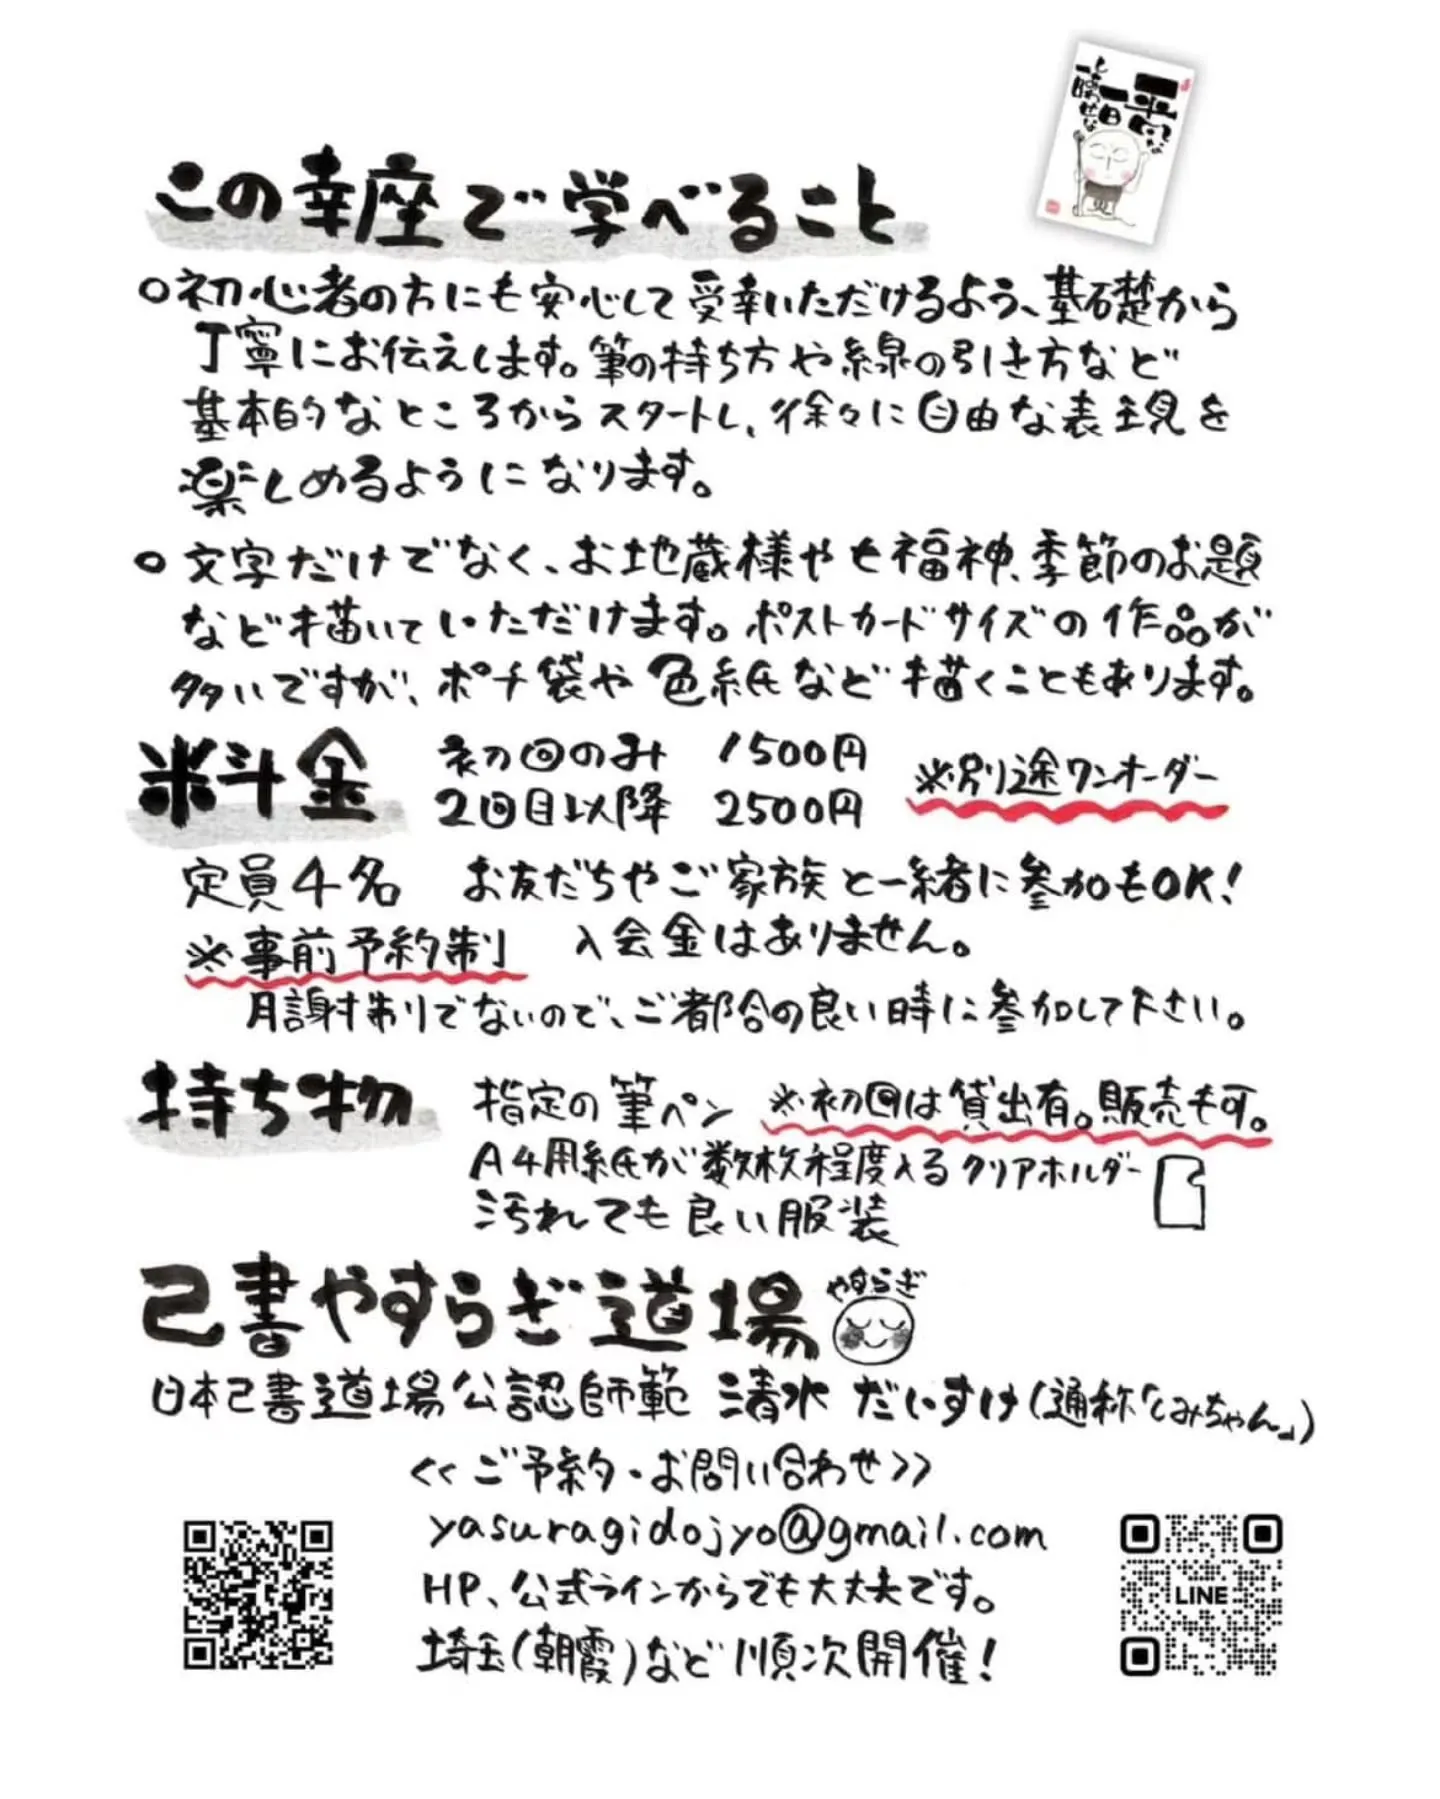 一番平凡な
一日
一番幸せな
この幸座で学べること
○初心者の方にも安心して受幸いただけるよう、基礎から
丁寧にお伝えします。筆の持ち方や線の引き方など
基本的なところからスタートし、徐々に自由な表現を
楽しめるようになります。
○文字だけでなく、お地蔵様や七福神、季節のお題
など描いていただけます。ポストカードサイズの作品が
多いですが、ポチ袋や色紙など描くこともあります。
料金 初回のみ 1500円 ※別途ワンオーダー
2回目以降 2500円
定員4名 お友だちやご家族と一緒に参加もOK!
※事前予約制 入会金はありません。
月謝制りでないので、ご都合の良い時に参加して下さい。
持ち物 指定の筆ペン ※初回は貸出有。販売も可。
A4用紙が数枚程度入るクリアホルダー
汚れても良い服装
己書やすらぎ道場 やすらぎ
日本己書道場公認師範 清水 だいすけ(通称「しみちゃん」)
<<ご予約・お問い合わせ>>
yasuragidojyo@gmail.com
HP、公式ラインからでも大丈夫です。
埼玉(朝霞)など順次開催!
LINE